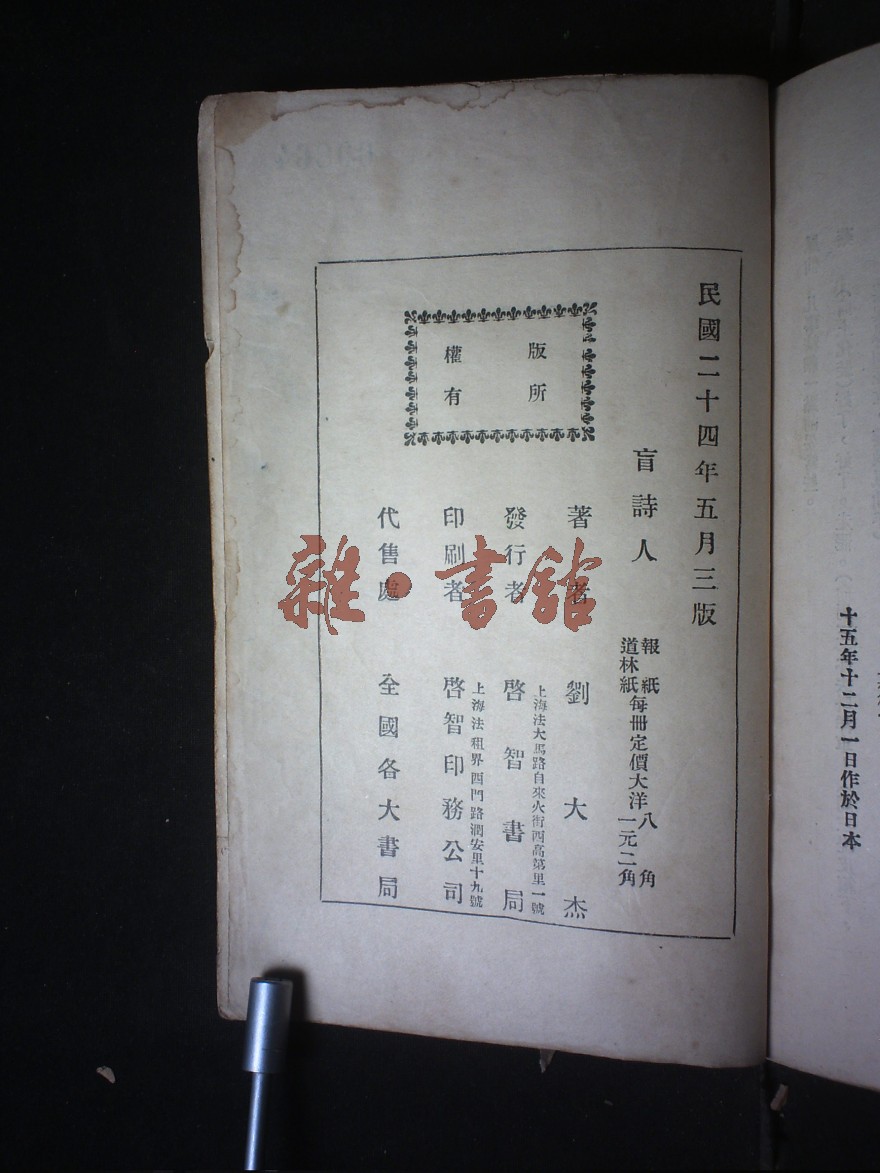 十五年十二月一日作於日本
民國二十四年五月三版
盲詩人
報紙每冊定價大洋八角
道林紙每冊定價大洋一元二角
版所
權有
著者 劉大杰
發行者 啓智書局
上海法大馬路自來火街西高第里一號
印刷者 啓智印務公司
上海法租界西門路潤安里十九號
代售處 全國各大書局
雜·書館